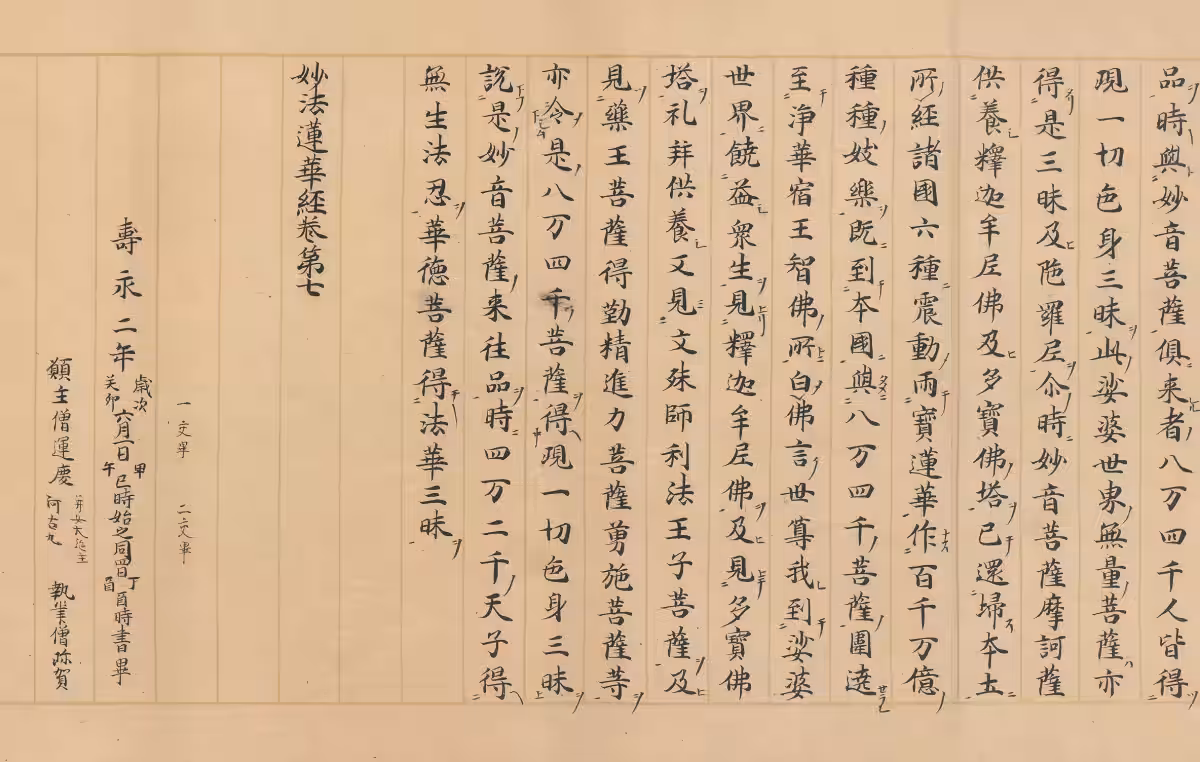 品時與妙音菩薩俱来者八万四千人皆得
現一切色身三昧此娑婆世界無量菩薩亦
得是三昧及陁羅尼尒時妙音菩薩摩訶薩
供養釋迦牟尼佛及多寶佛塔已還歸本土
所經諸國六種震動雨寶蓮華作百千万億
種種妓樂既到本國與八万四千菩薩圍遶
至淨華宿王智佛所白佛言世尊我到娑婆
世界饒益衆生見釋迦牟尼佛及見多寶佛
塔礼拜供養又見文殊師利法王子菩薩及
見藥王菩薩得勤精進力菩薩勇施菩薩等
亦令是八万四千菩薩得現一切色身三昧
說是妙音菩薩来往品時四万二千天子得
無生法忍華德菩薩得法華三昧
妙法蓮華經卷第七
一交畢 二交畢
壽永二年歳次癸卯六月一日甲午巳時始之同四日丁酉酉時書畢
願主僧運慶 并女大施主阿古丸 執筆僧珎賀